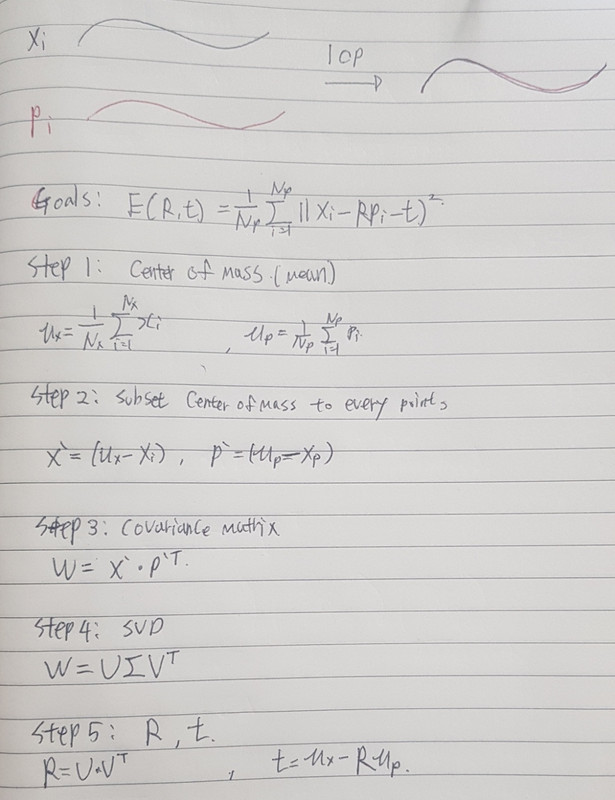 Xi
ICP
Pi
Goals: E(R,t) = 1/Np Σ_{i=1}^{Np} ||Xi - RPi - t)²
Step 1: Center of mass.(mean)
Ux = 1/Nx Σ_{i=1}^{Nx} xi , Up = 1/Np Σ_{i=1}^{Np} Pi
Step 2: Subset Center of Mass to every points
X` = (Ux - Xi), P` = (Up - Xp)
Step 3: Covariance matrix
W = X` · P`T.
Step 4: SVD
W = UΣV^T
Step 5: R, t.
R = U·V^T , t = Ux - RUp.